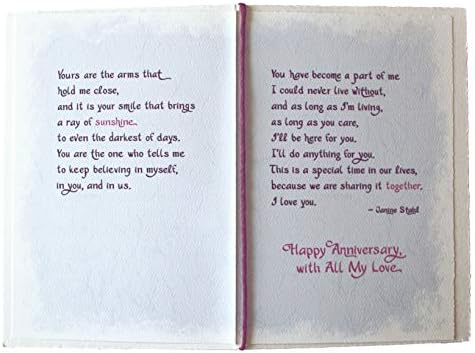 Yours are the arms that
hold me close,
and it is your smile that brings
a ray of sunshine
to even the darkest of days.
You are the one who tells me
to keep believing in myself,
in you, and in us.
You have become a part of me
I could never live without,
and as long as I'm living,
as long as you care,
I'll be here for you.
I'll do anything for you.
This is a special time in our lives,
because we are sharing it together.
I love you.
– Janine Stahl
Happy Anniversary,
with All My Love